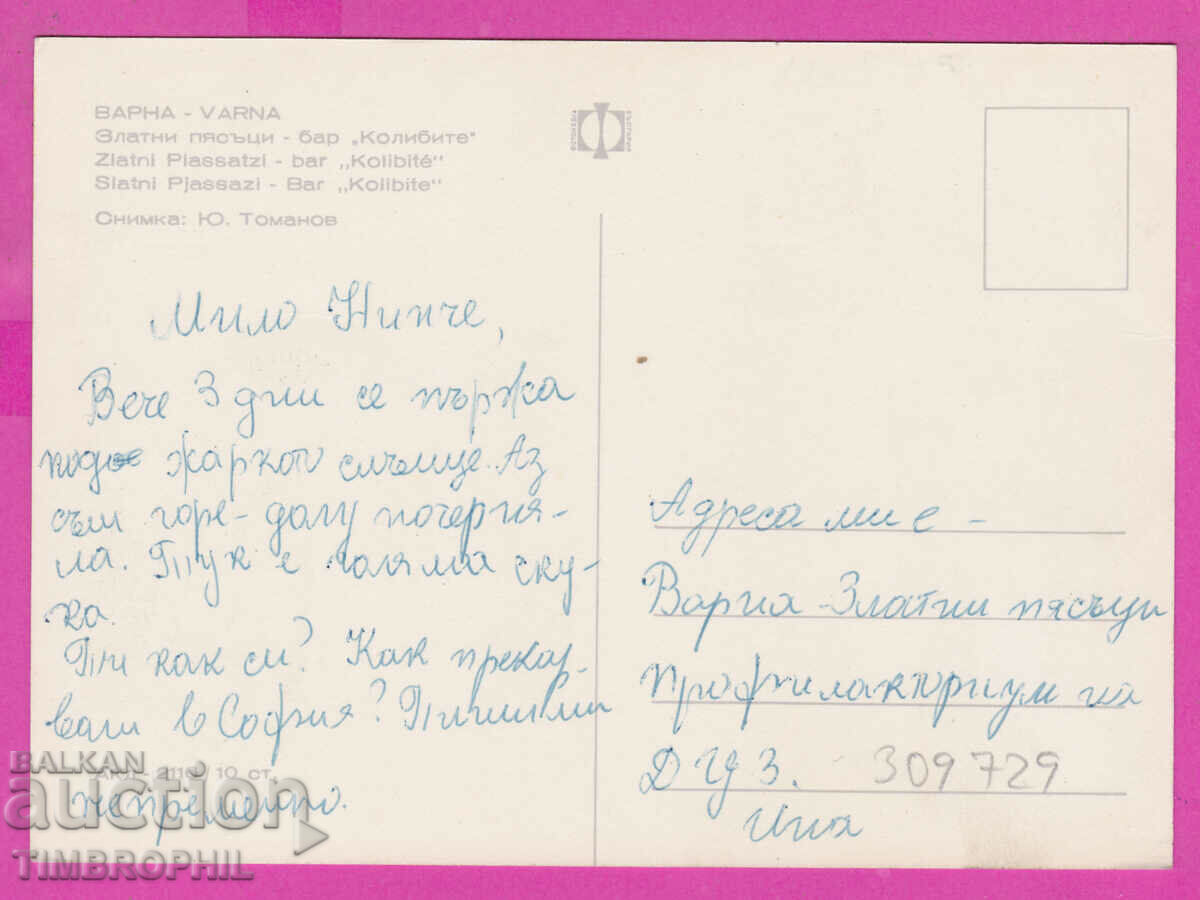 ВАРНА - VARNA
Златни пясъци - бар „Колибите"
Zlatni Piassatzi - bar „Kolibité"
Slatni Pjassazi - Bar „Kolibite"
Снимка: Ю. Томанов
Мило Нинче,
Вече 3 дни се пържа
под жаркото слънце. Аз
съм горе-долу почерня-
ла. Тук е голяма ску-
ка.
Ти как си? Как прекар-
ваш в София? Пиши ми
непременно.
Адреса ми е -
Варна - Златни пясъци
Профилакториум на
ДЗ.
309729
Ина
2118 10 ст.
BALKAN
auction
TIMBROPHIL